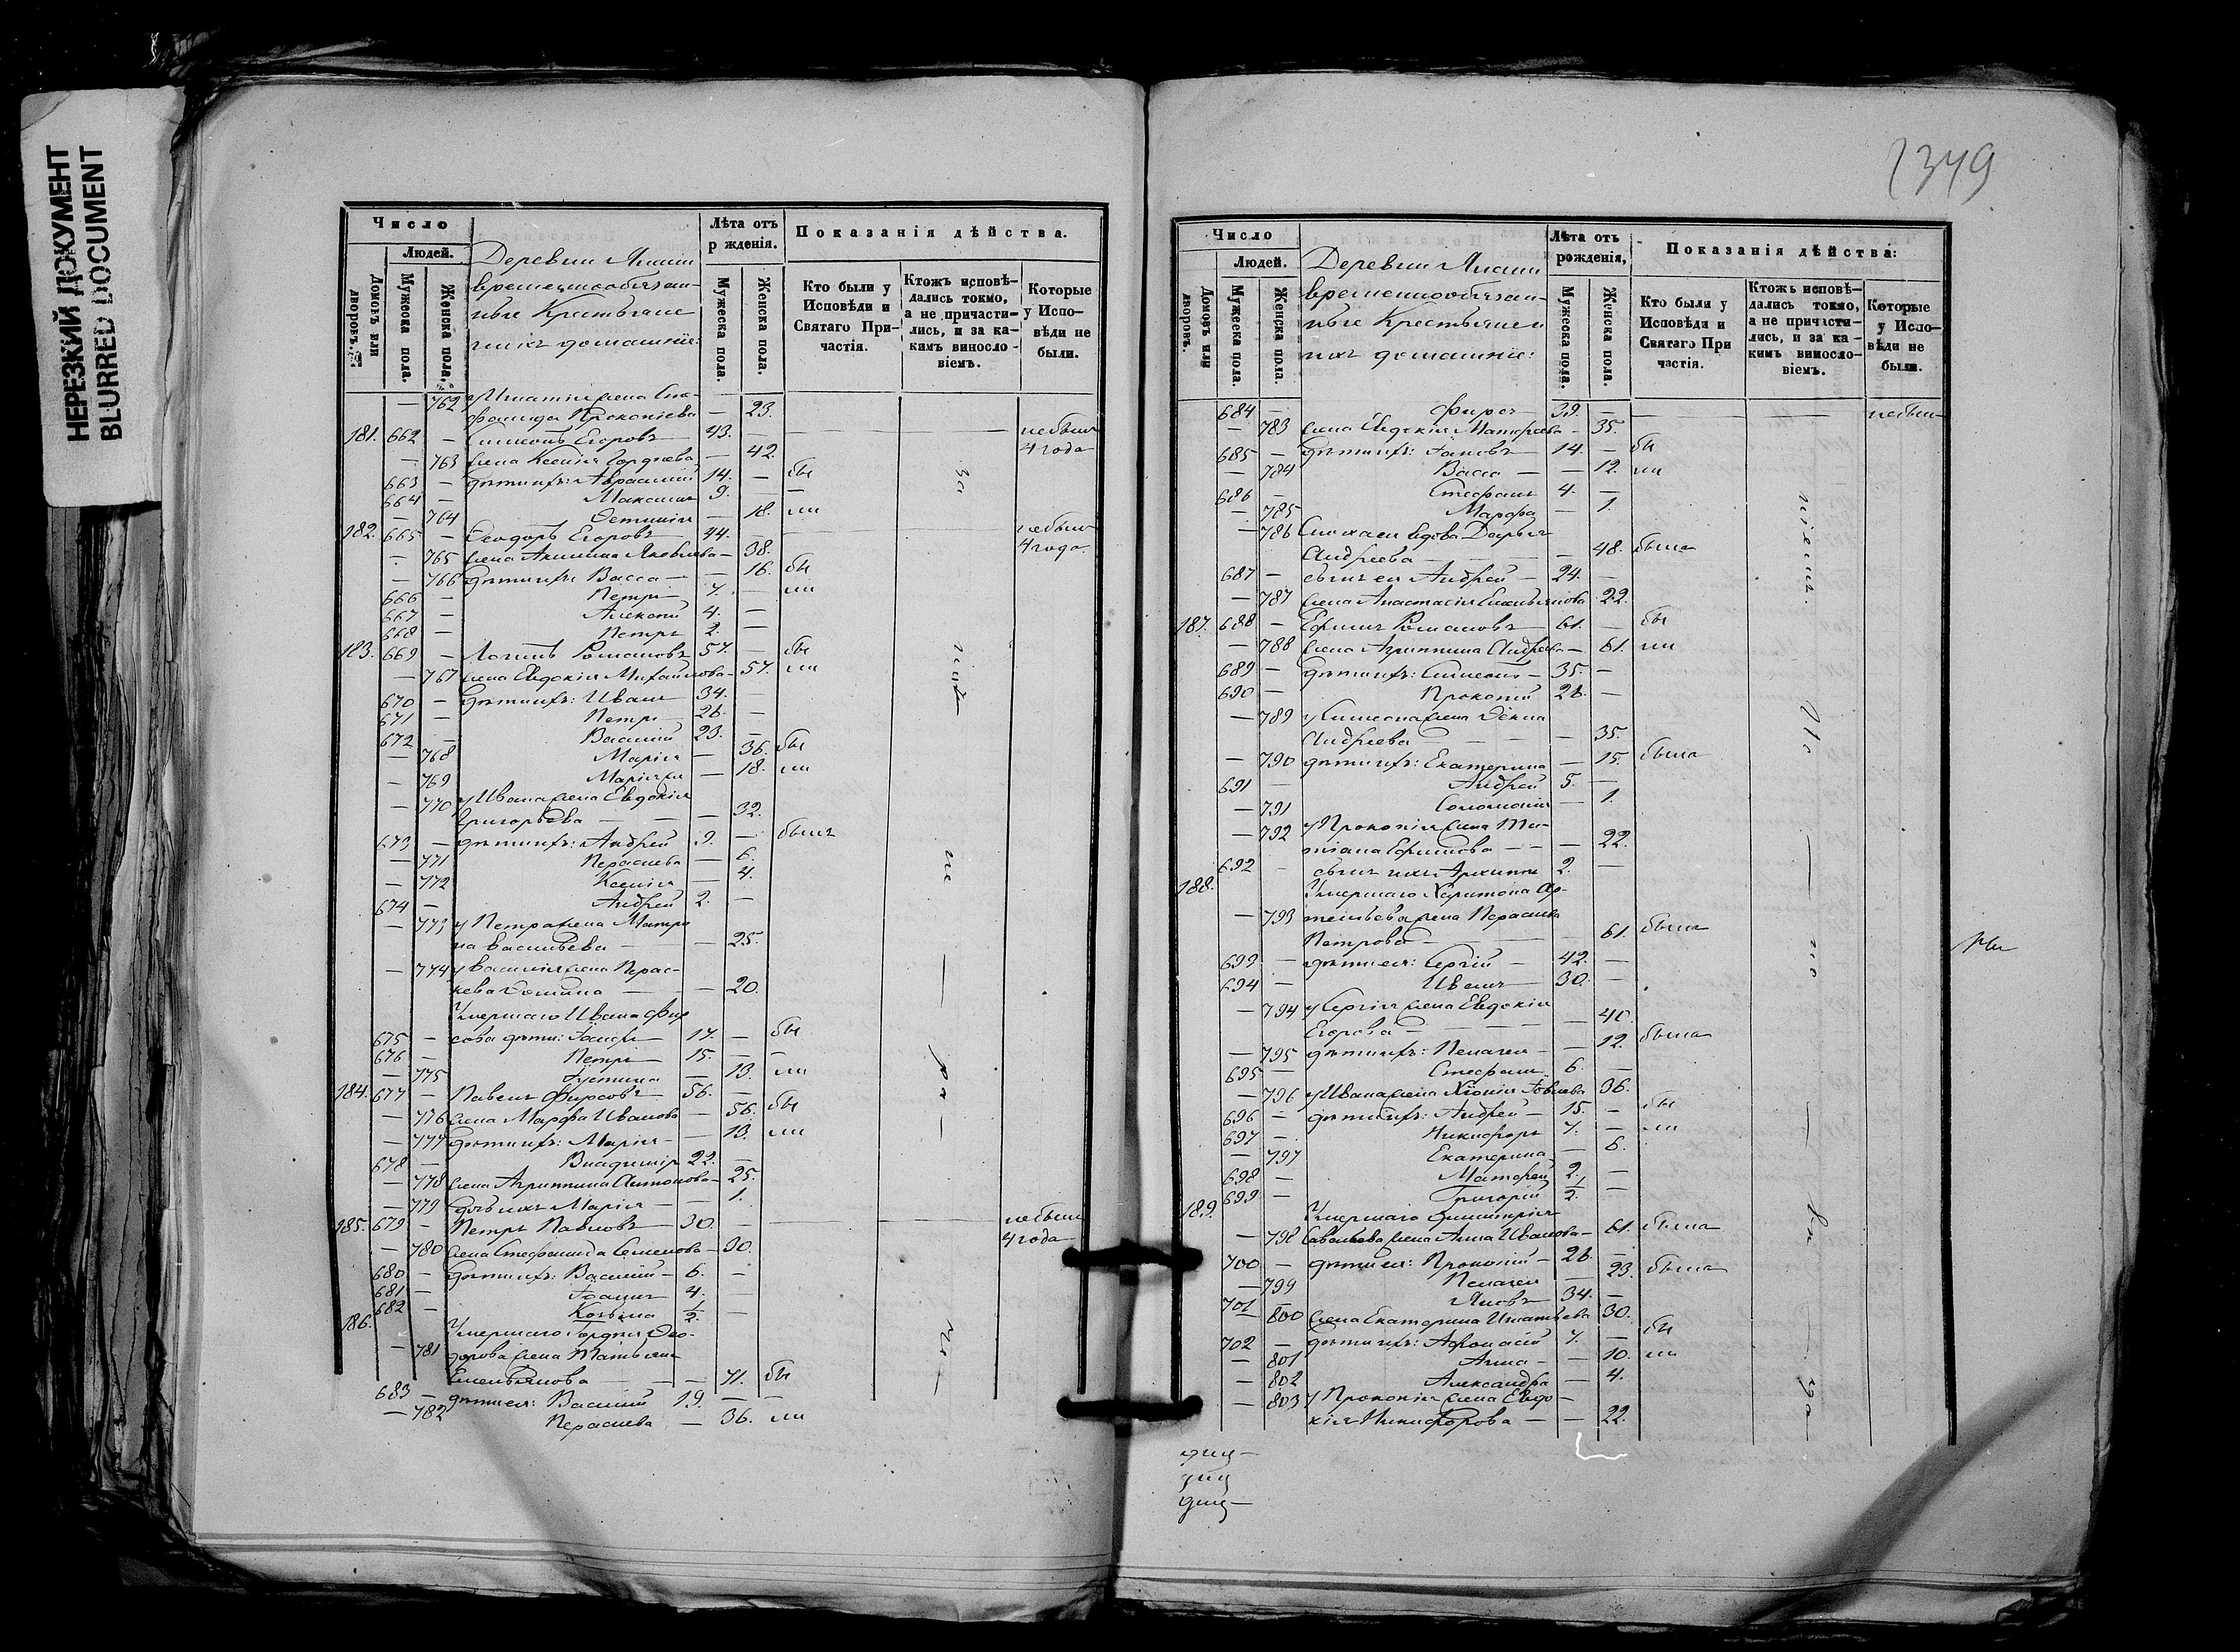 НЕРЕЗКИЙ ДОКУМЕНТ
BLURRED DOCUMENT
Число
Людей.
Домовъ или дворовъ.
Мужеска пола.
Женска пола.
Деревни
временнообязан-
ные Крестьяне
и ихъ домашніе:
Лѣта отъ р жденія.
Мужеска пола.
Женска пола.
Показанія дѣйства.
Кто были у Исповѣди и Святаго При-частія.
Ктожъ исповѣ-дались токмо, а не причасти-лись, и за ка-кимъ виносло-віемъ.
Которые у Испо-вѣди не были.
— 762 у Игнатія жена Сте-
фанида Прокопіева — 23.
181. 662 — Симеонъ Егоровъ 43. — не были
— 763 жена Ксенія Гордѣева — 42. 4 года
663 — дѣти ихъ: Аврамій 14. — бы
664 — Максимъ 9. —
— 764 Устинія — 18. ли
182. 665 — Ѳеодоръ Егоровъ 44. — не были
— 765 жена Акилина Яковлева — 38. 4 года
— 766 дѣти ихъ Васса — 16. бы
666 — Петръ 7. — ли
667 — Алексій 4. —
668 — Петръ 2. —
183. 669 — Логинъ Романовъ 57. — бы
— 767 жена Евдокія Михайлова — 57. ли
670 — дѣти ихъ: Иванъ 34. —
671 — Петръ 26. —
672 — Василій 23. —
— 768 Марія — 36. бы
— 769 Марія — 18. ли
— 770 у Ивана жена Евдокія
Григорьева — — 32.
673 — дѣти ихъ: Андрей 9. — былъ
— 771 Параскева — 6.
— 772 Ксенія — 4.
674 — Андрей 2. —
— 773 у Петра жена Матро
на Васильева — — 25.
— 774 у Василія жена Парас-
кева Ѳомина — — 20.
Умершаго Ивана Фир
675 — сова дѣти: Іосифъ 17. — бы
676 — Петръ 15. —
— 775 Іустина — 13. ли
184. 677 — Павелъ Фирсовъ 56. —
— 776 жена Марфа Иванова — 56. бы
— 777 дѣти ихъ: Марія — 13. ли
678 — Владиміръ 22. —
— 778 жена Агриппина Антонова — 25.
— 779 дочь ихъ Марія — 1.
185. 679 — Петръ Павловъ 30. — не были
— 780 жена Стефанида Семенова — 30. 4 года
680 — дѣти ихъ: Василій — 6. —
681 — Іоаннъ 4. —
682 — Козьма 1/2. —
186. Умершаго Гордѣя Ѳео-
— 781 дорова жена Татьяна
Емельянова — — 71. бы
683 — дѣти ея: Василій 19. —
— 782 Параскева — 36. ли
1349
Число
Людей.
Домовъ или дворовъ.
Мужеска пола.
Женска пола.
Деревни
временнообязан-
ные Крестьяне и
ихъ домашніе:
Лѣта отъ рожденія,
Мужеска пола.
Женска пола.
Показанія дѣйства:
Кто были у Исповѣди и Святаго При частія.
Ктожъ исповѣ-дались токмо, а не причасти-лись, и за ка-кимъ виносло-віемъ.
Которые у Испо-вѣди не были.
684 — Фирсъ — 39. — не были
— 783 жена Евдокія Матфеева — 35.
685 — дѣти ихъ: Іаковъ — 14. — бы
— 784 Васса — — 12. ли
686 — Стефанъ 4. —
— 785 Марфа — 1.
— 786 Снохаея вдова Дарья
Андреева — — 48. была
687 — сынъ ея Андрей — 24. —
— 787 жена Анастасія Емельянова 22.
187. 688 — Ефимъ Романовъ — 61. — бы
— 788 жена Агриппина Андреева — 61. ли
689 — дѣти ихъ: Симеонъ — 35. —
690 — Прокопій 26. —
— 789 у Симеона жена Ѳекла
Андреева — — 35.
— 790 дѣти ихъ: Екатерина — 15. была
691 — Андрей 5. —
— 791 Соломонія — 1.
— 792 у Прокопія жена Та-
тіана Ефимова — — 22.
692 — сынъ ихъ Архиппъ 2. —
188. Умершаго Харитона Ар-
— 793 темьева жена Параскева
Петрова — — 61. была
693 — дѣти ея: Сергій — 42. —
694 — Иванъ — 30. —
— 794 у Сергія жена Евдокія
Егорова — — 40.
— 795 дѣти ихъ: Пелагея — — 12. была
695 — Стефанъ 6. —
— 796 у Ивана жена Хіонія Іовлева 36.
696 — дѣти ихъ: Андрей — 15. — бы
697 — Никифоръ 7. — ли
— 797 Екатерина — 6.
698 — Матфей 2. —
699 — Григорій 1/2 —
189. Умершаго Димитрія
— 798 Савельева жена Анна Иванова — 61. была
700 — дѣти ея: Прокопій — 26. —
— 799 Пелагея — 23. была
701 — Яковъ 34. —
— 800 жена Екатерина Игнатьева 30.
702 — дѣти ихъ: Афонасій 7. — бы
— 801 Анна — — 10. ли
— 802 Александра — 4.
— 803 у Прокопія жена Евдо —
кія Никифорова — — 22.